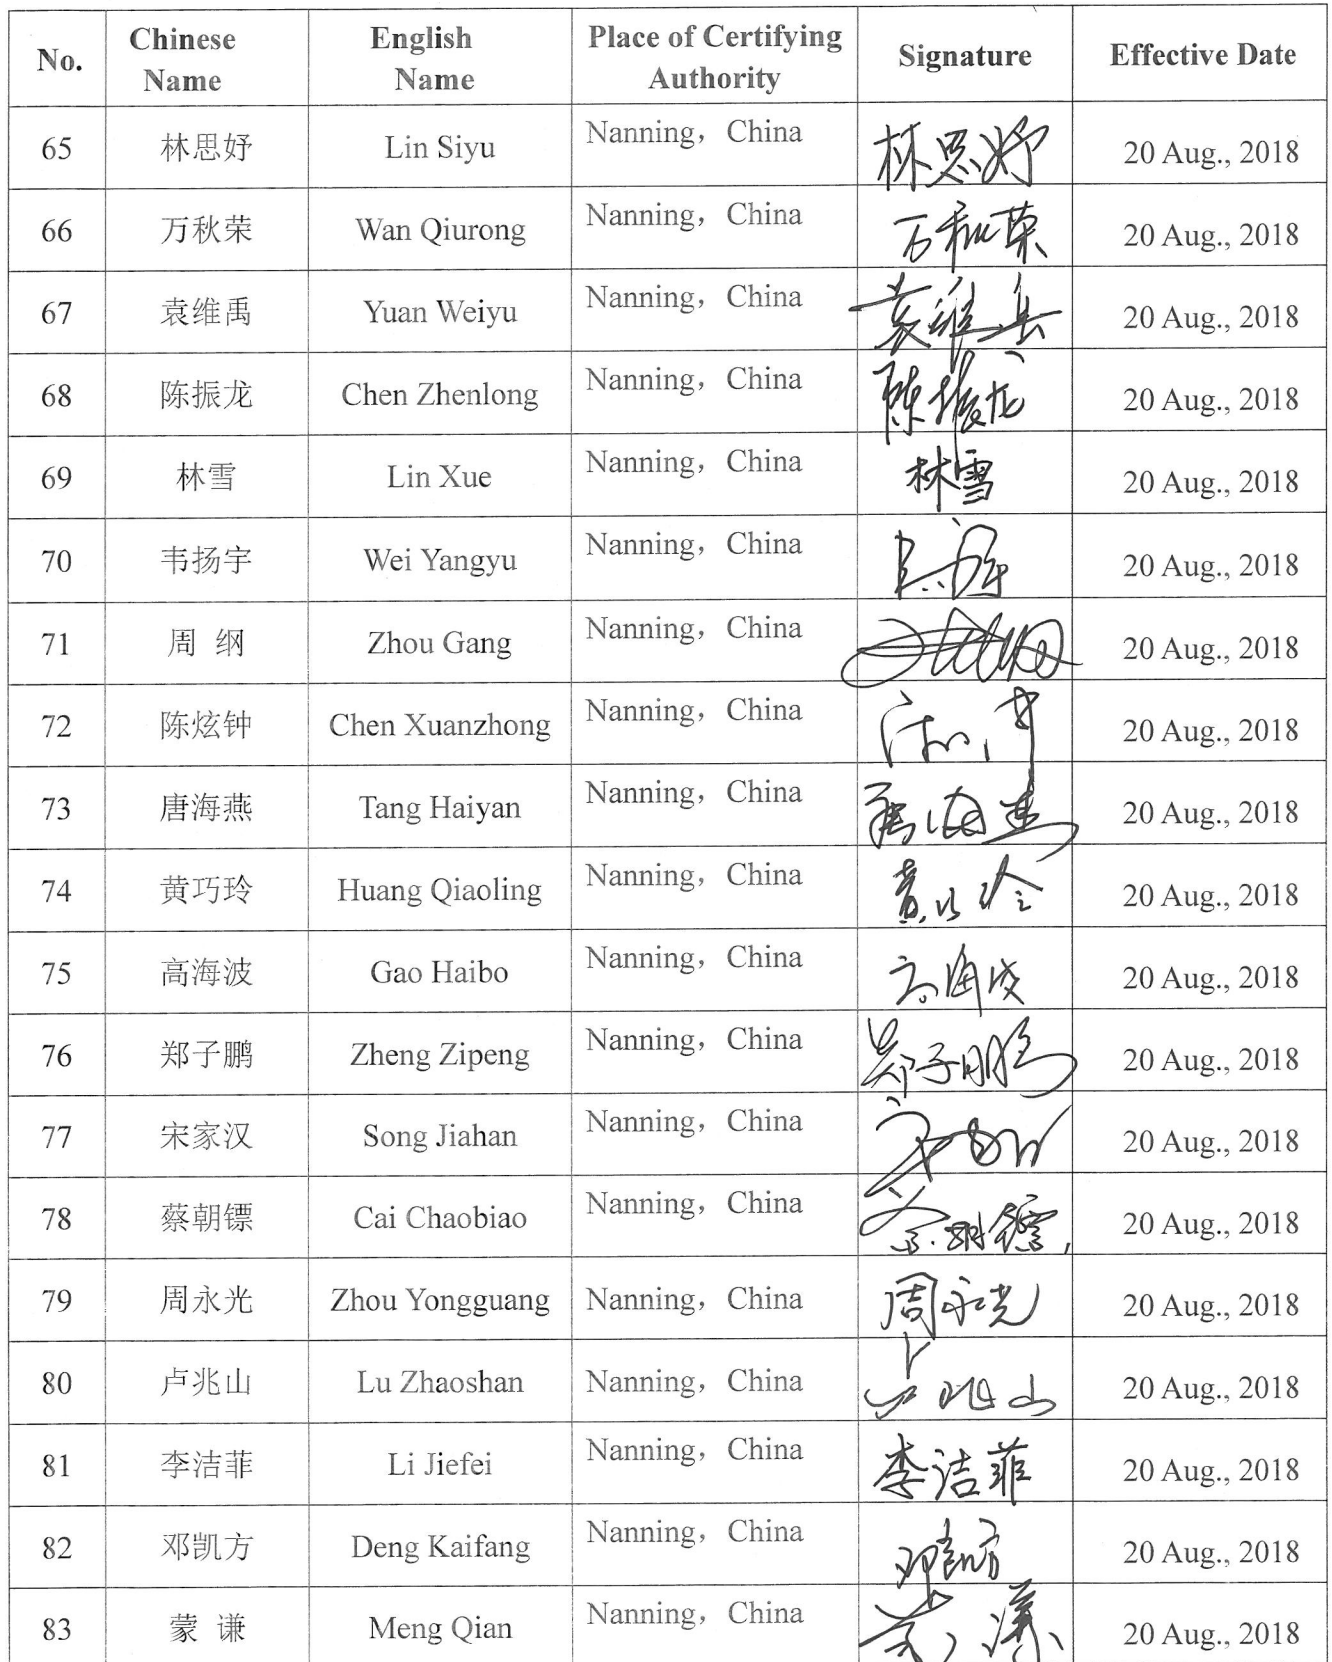 No. Chinese Name English Name Place of Certifying Authority Signature Effective Date
65 林思妤 Lin Siyu Nanning，China 林思妤 20 Aug., 2018
66 万秋荣 Wan Qiurong Nanning，China 万秋荣 20 Aug., 2018
67 袁维禹 Yuan Weiyu Nanning，China 袁维禹 20 Aug., 2018
68 陈振龙 Chen Zhenlong Nanning，China 陈振龙 20 Aug., 2018
69 林雪 Lin Xue Nanning，China 林雪 20 Aug., 2018
70 韦扬宇 Wei Yangyu Nanning，China 20 Aug., 2018
71 周 纲 Zhou Gang Nanning，China 20 Aug., 2018
72 陈炫钟 Chen Xuanzhong Nanning，China 20 Aug., 2018
73 唐海燕 Tang Haiyan Nanning，China 唐海燕 20 Aug., 2018
74 黄巧玲 Huang Qiaoling Nanning，China 黄巧玲 20 Aug., 2018
75 高海波 Gao Haibo Nanning，China 高海波 20 Aug., 2018
76 郑子鹏 Zheng Zipeng Nanning，China 郑子鹏 20 Aug., 2018
77 宋家汉 Song Jiahan Nanning，China 20 Aug., 2018
78 蔡朝镖 Cai Chaobiao Nanning，China 蔡朝镖 20 Aug., 2018
79 周永光 Zhou Yongguang Nanning，China 周永光 20 Aug., 2018
80 卢兆山 Lu Zhaoshan Nanning，China 卢兆山 20 Aug., 2018
81 李洁菲 Li Jiefei Nanning，China 李洁菲 20 Aug., 2018
82 邓凯方 Deng Kaifang Nanning，China 邓凯方 20 Aug., 2018
83 蒙 谦 Meng Qian Nanning，China 蒙谦 20 Aug., 2018